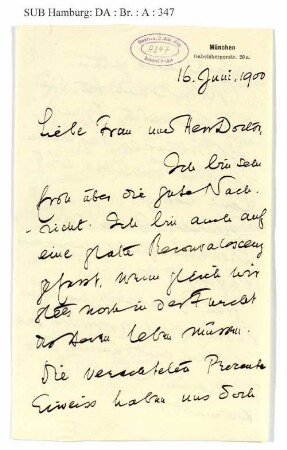 SUB Hamburg: DA : Br. : A : 347
München
Gabelsbergerstr. 20a.
16. Juni. 1900
Liebe Frau und Herr Doctor,
Ich bin sehr
froh über die gute Nach-
richt. Ich bin auch auf
eine glatte Reconvalescenz
gefasst, wenn gleich wir
stets noch in der Furcht
des Herrn leben müssen.
Die verachteten Procente
Eiweiss haben uns doch